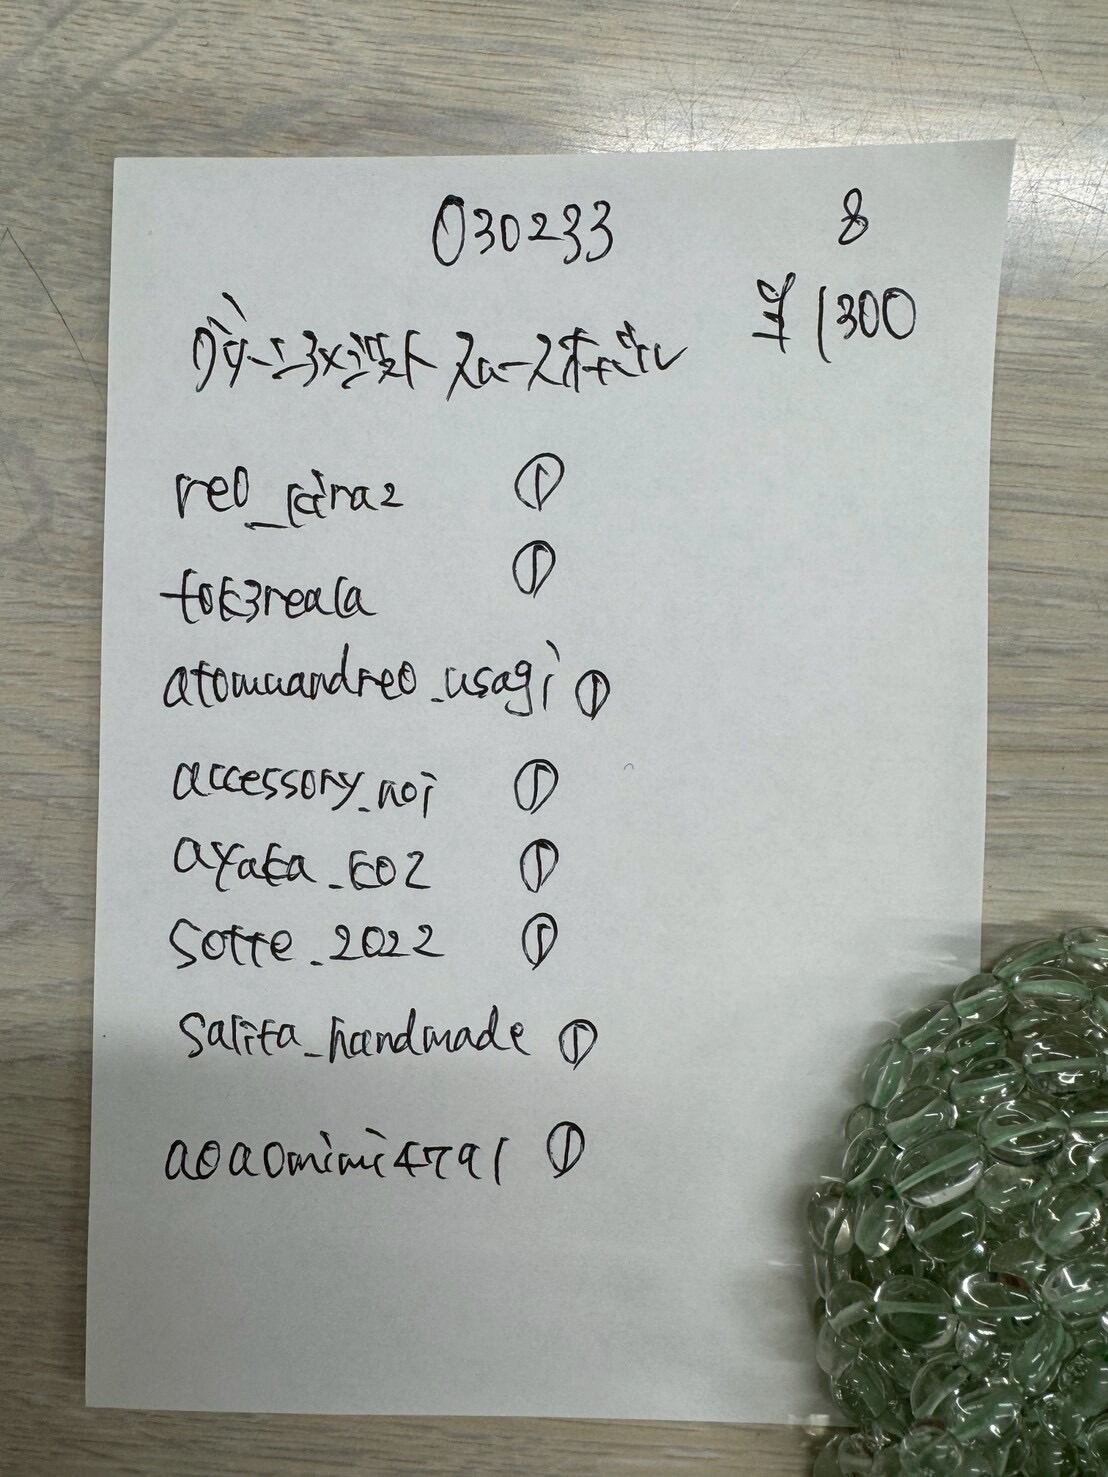 030233 8
¥1300
reo_kira2 ①
tok3reala ①
atomuandreo_usagi ①
accessory_noi ①
ayaka_k02 ①
Sotte_2022 ①
Salita_handmade ①
aoaomimi4791 ①